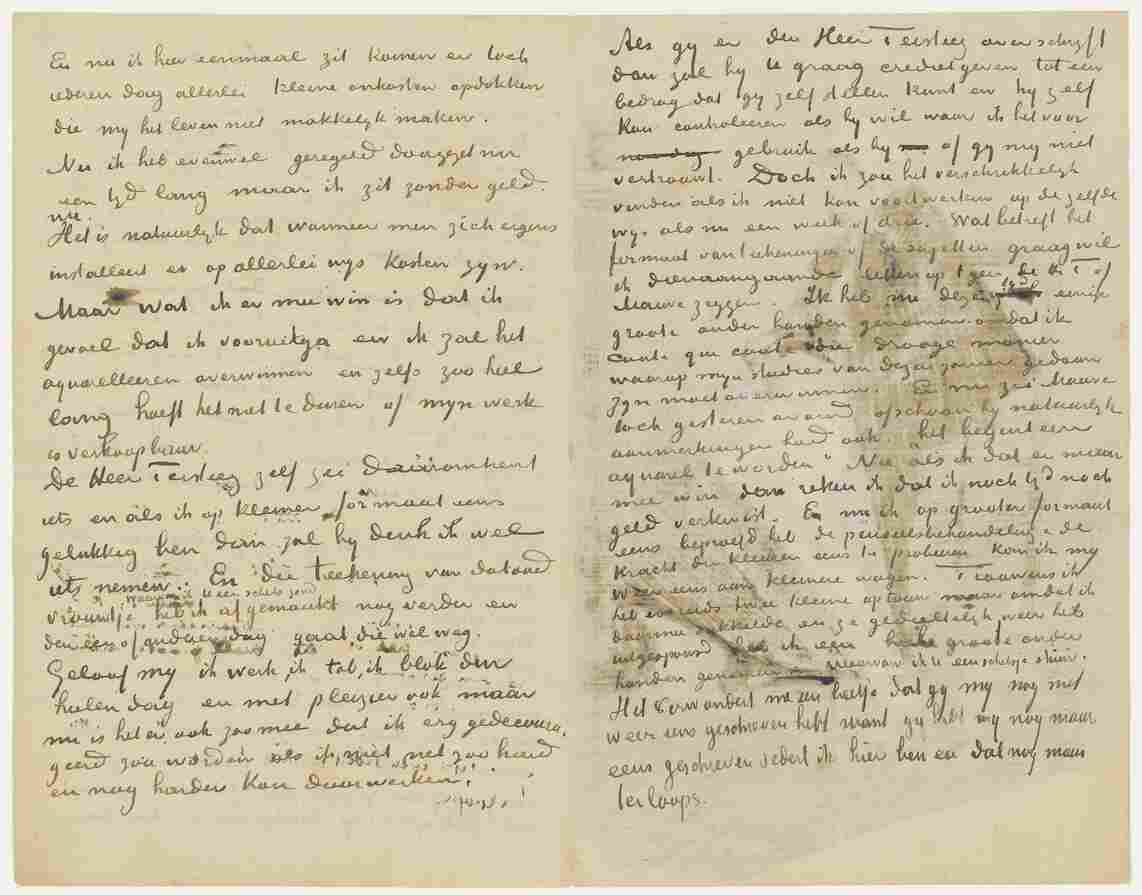 En nu ik hier eenmaal zit komen er toch
iederen dag allerlei kleine onkosten opdokken
die my het leven niet makkelyk maken.
Nu ik heb evenwel geregeld doorgezet nu
een tyd lang maar ik zit zonder geld
nu.
Het is natuurlyk dat wanneer men zich ergens
installeert er op allerlei wys kosten zyn.
Maar wat ik er mee win is dat ik
gevoel dat ik vooruitga en ik zal het
aquarelleeren overwinnen en zelfs zoo heel
lang hoeft het niet te duren of myn werk
is verkoopbaar.
De Heer Tersteeg zelf zei daaromtrent
iets en als ik op kleiner formaat eens
gelukkig ben dan zal hy denk ik wel
iets nemen. En die teekening van dat oud
waarvan ik u een schets zond
vrouwtje heb ik afgemaakt nog verder en
den een of anderen dag gaat die wel weg.
Geloof my ik werk, ik tob, ik blok den
heelen dag en met plezier ook maar
nu is het er ook zoo mee dat ik erg gedecoura,
geerd zou worden als ik niet net zoo hard
en nog harder kon doorwerken!
Als gy er den Heer Tersteeg over schryft
dan zal hy u graag crediet geven tot een
bedrag dat gy zelf stellen kunt en hy zelf
kan controleeren als hy wil waar ik het voor
noodig gebruik als hy of gy my niet
vertrouwt. Doch ik zou het verschrikkelyk
vinden als ik niet kon voortwerken op de zelfde
wys als nu een week of drie. Wat betreft het
formaat van teekeningen of de sujetten graag wil
ik dienaangaande letten op tgeen de H T of
Mauve zeggen. Ik heb nu dezer tyd eenige
groote onder handen genomen omdat ik
coute que coute die drooge manier
waarop myn studies van dezen zomer gedaan
zyn moet overwinnen. En nu zei Mauve
toch gisteren avond ofschoon hy natuurlyk
aanmerkingen had ook. "het begint een
aquarel te worden" Nu, als ik dat er maar
mee win dan reken ik dat ik noch tyd noch
geld verkwist. En nu ik op grooter formaat
eens beproefd heb de penseelsbehandeling & de
kracht der kleuren eens te probeeren kan ik my
weer eens aan kleinere wagen. Trouwens ik
heb er reeds twee kleine op touw maar omdat ik
daarmee sukkelde en ze gedeeltelyk weer heb
uitgesponsd heb ik een groote onder
handen genomen waarvan ik u een schetsje stuur.
Het verwondert me een beetje dat gy my nog niet
weer eens geschreven hebt want gy hebt my nog maar
eens geschreven sedert ik hier ben en dat nog maar
terloops.